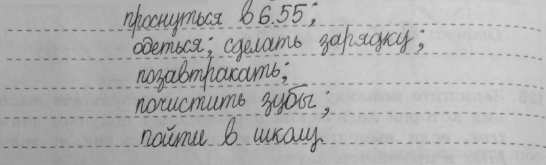 проснуться в 6.55;
одеться; сделать зарядку;
позавтракать;
почистить зубы;
пойти в школу.